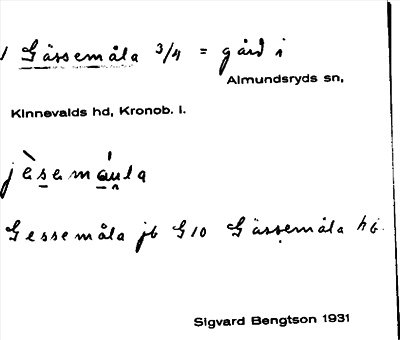 1 Gässemåla 3/4 = gård i
Almundsryds sn,
Kinnevalds hd, Kronob. l.
jèsemáula
Gessemåla jb G10 Gässemåla hg.
Sigvard Bengtson 1931